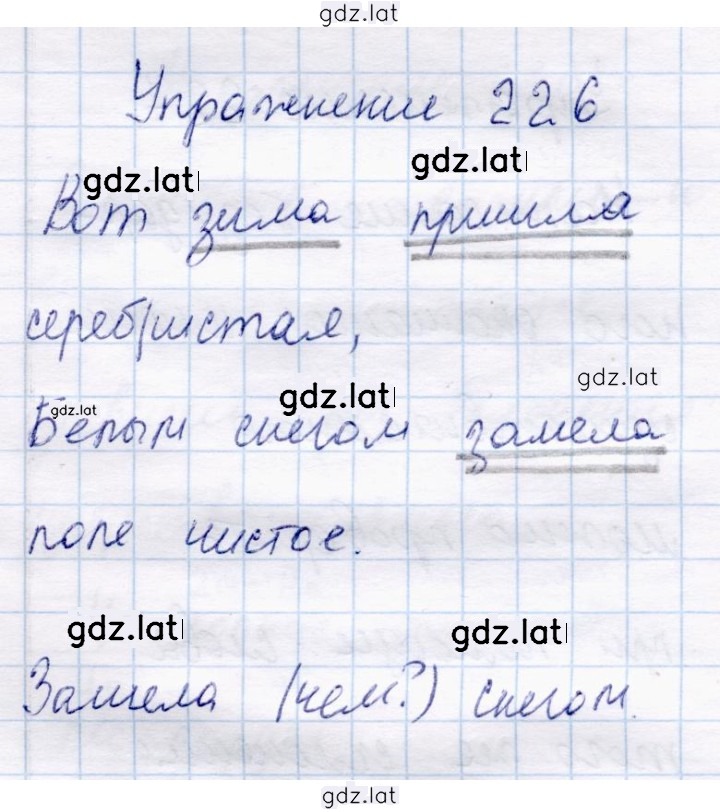 gdz.lat
Упражнение 226
gdz.lat gdz.lat
Вот зима пришла
серебристая,
gdz.lat gdz.lat gdz.lat
Белым снегом замела
поле чистое.
gdz.lat gdz.lat
Замела (чем?) снегом.
gdz.lat